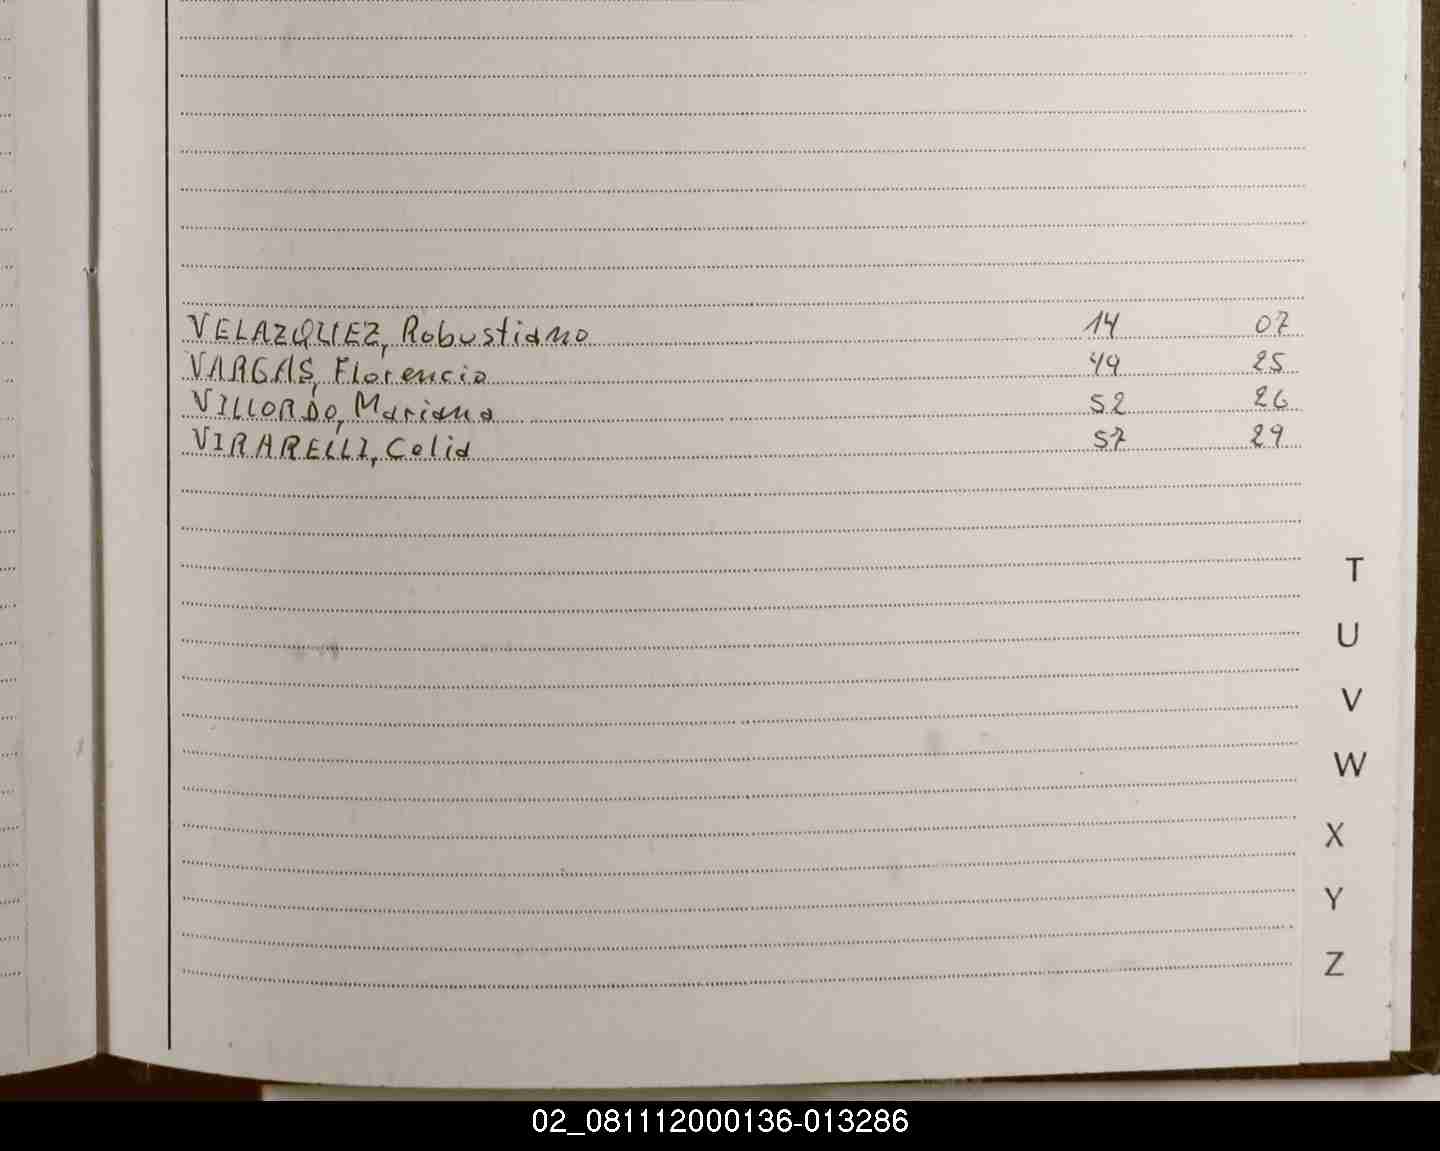 VELAZQUEZ, Robustiano 14 07
VARGAS, Florencio 49 25
VILLORDO, Mariano 52 26
VIRARELLI, Celia 57 29
T
U
V
W
X
Y
Z
02_081112000136-013286